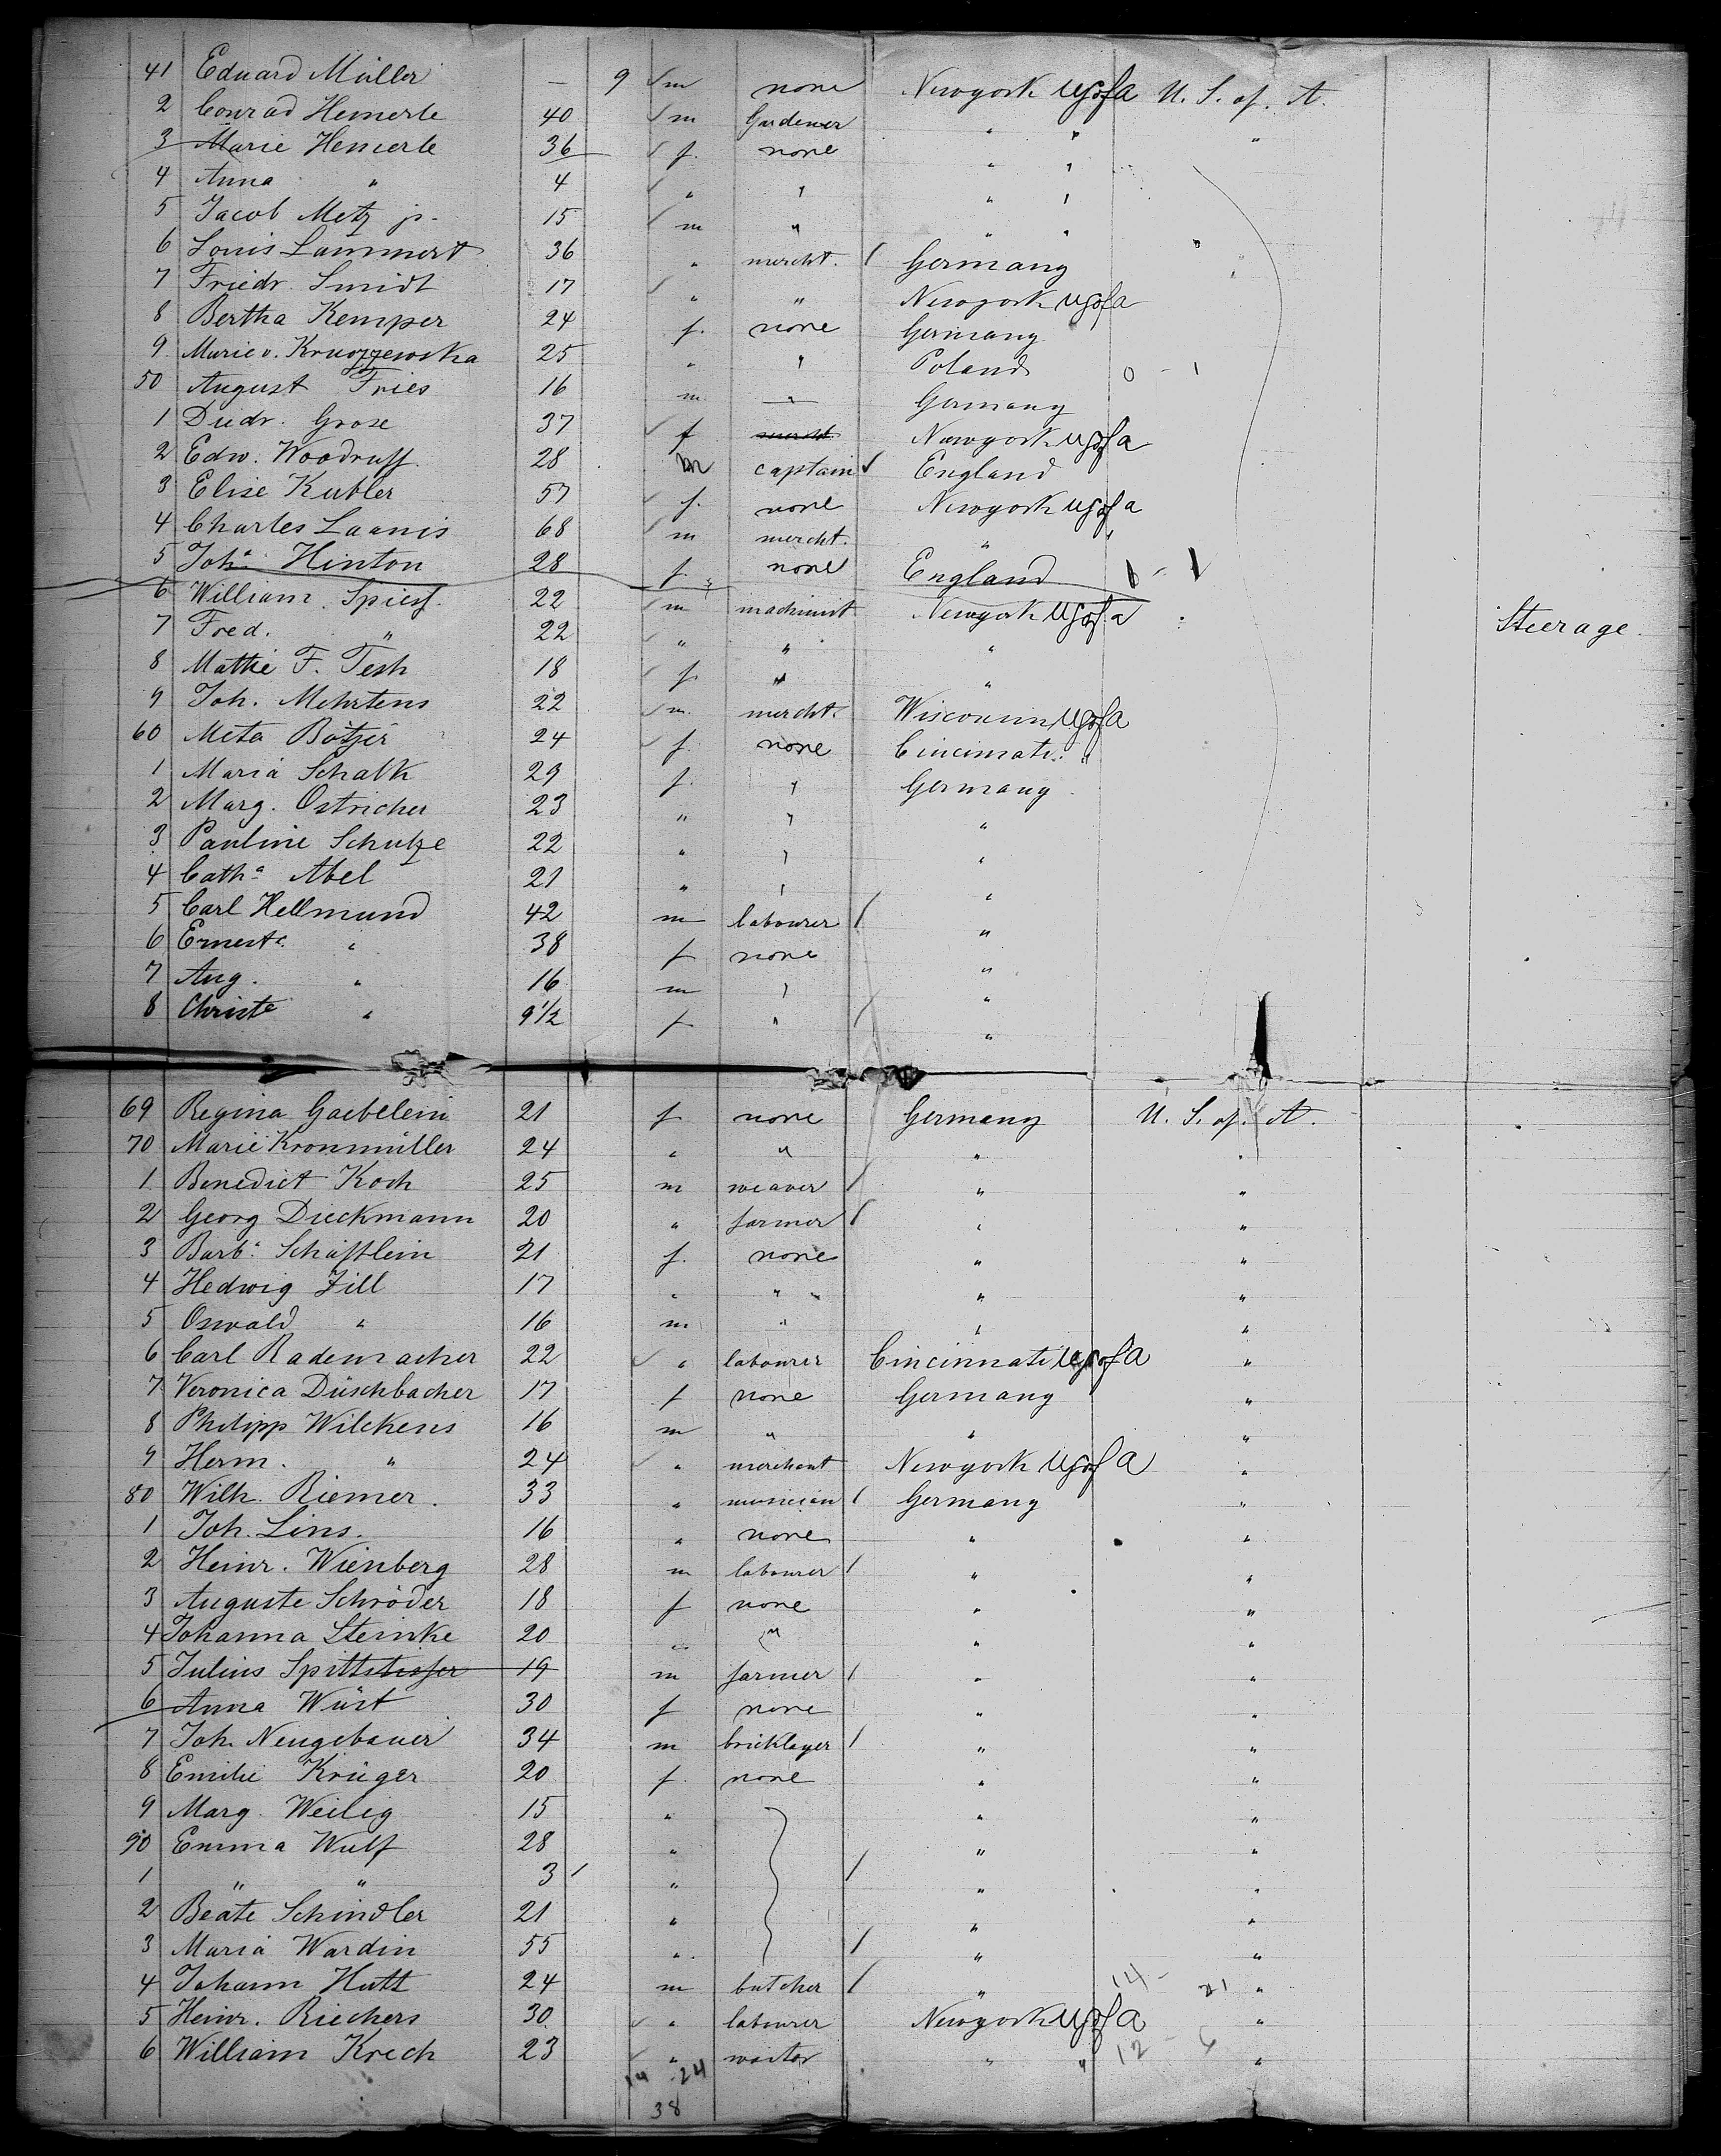 41 Eduard Müller — 9 ✓ m none Newyork U S of a U. S. of. A.
2 Conrad Hemerle 40 ✓ m Gardener " " "
3 Marie Hemerle 36 ✓ f. none " "
4 Anna " 4 ✓ " " " "
5 Jacob Metz jr. 15 ✓ m " " " "
6 Louis Lammert 36 " mercht. / Germany "
7 Friedr. Smidt 17 ✓ " " Newyork U S of a
8 Bertha Kemper 24 f. none Germany
9 Marie v. 25 " " Poland 0 - 1
50 August Fries 16 m " Germany
1 Diedr. Grose 37 ✓ f mercht. Newyork U S of a
2 Edw. Woodruff. 28 m captain ✓ England
3 Elise Kubler 57 ✓ f. none Newyork U S of a
4 Charles Laanis 68 ✓ m mercht. " "
5 Joha. Hinton 28 f. none England 1 - 1
6 William Spiess. 22 ✓ m machinist Newyork U S of a Steerage.
7 Fred. " 22 ✓ " " "
8 Mathie F. Tesh 18 ✓ f. " "
9 Joh. Mehrtens 22 ✓ m. mercht. Wisconsin U S of a
60 Meta Bötzer 24 ✓ f. none Cincinnati. "
1 Maria Schalk 29 f. " Germany
2 Marg. Ostricher 23 " " "
3 Pauline Schulze 22 " " "
4 Catha. Abel 21 " " "
5 Carl Hellmund 42 m labourer / "
6 Ernest. " 38 f none "
7 Aug. " 16 m " "
8 Christe " 9 1/2 f " / "
69 Regina Gaebelein 21 f none Germany U. S. of. A.
70 Marie Kronmüller 24 " " " "
1 Benedict Koch 25 m weaver / " "
2 Georg Dieckmann 20 " farmer / " "
3 Barba. Schäftlein 21 f. none " "
4 Hedwig Zill 17 " " " "
5 Oswald " 16 m " " "
6 Carl Rademacher 22 ✓ " labourer Cincinnati U S of a "
7 Veronica Düschbacher 17 f none Germany "
8 Philipp Wilckens 16 m " " "
9 Herm. " 24 ✓ " merchant Newyork U S of a "
80 Wilh. Riemer. 33 " musician / Germany "
1 Joh. Lins. 16 " none " "
2 Heinr. Wienberg 28 m labourer / " "
3 Auguste Schröder 18 f none " "
4 Johanna Steinke 20 " " " "
5 Julius Spittstisser 19 m farmer / " "
6 Anna Würt 30 f none " "
7 Joh. Neugebauer 34 m bricklayer / " "
8 Emilie Krüger 20 f. none " "
9 Marg. Weilig 15 " " "
90 Emma Wulf 28 " " "
1 " " 3 / " / " "
2 Beate Schindler 21 " " "
3 Maria Wardin 55 " / " "
4 Johann Hutt 24 m butcher / " 14 - 21 "
5 Heinr. Riechers 30 ✓ " labourer Newyork U S of a "
6 William Krech 23 ✓ " waiter " " 12 - 6 "
14 - 24
38